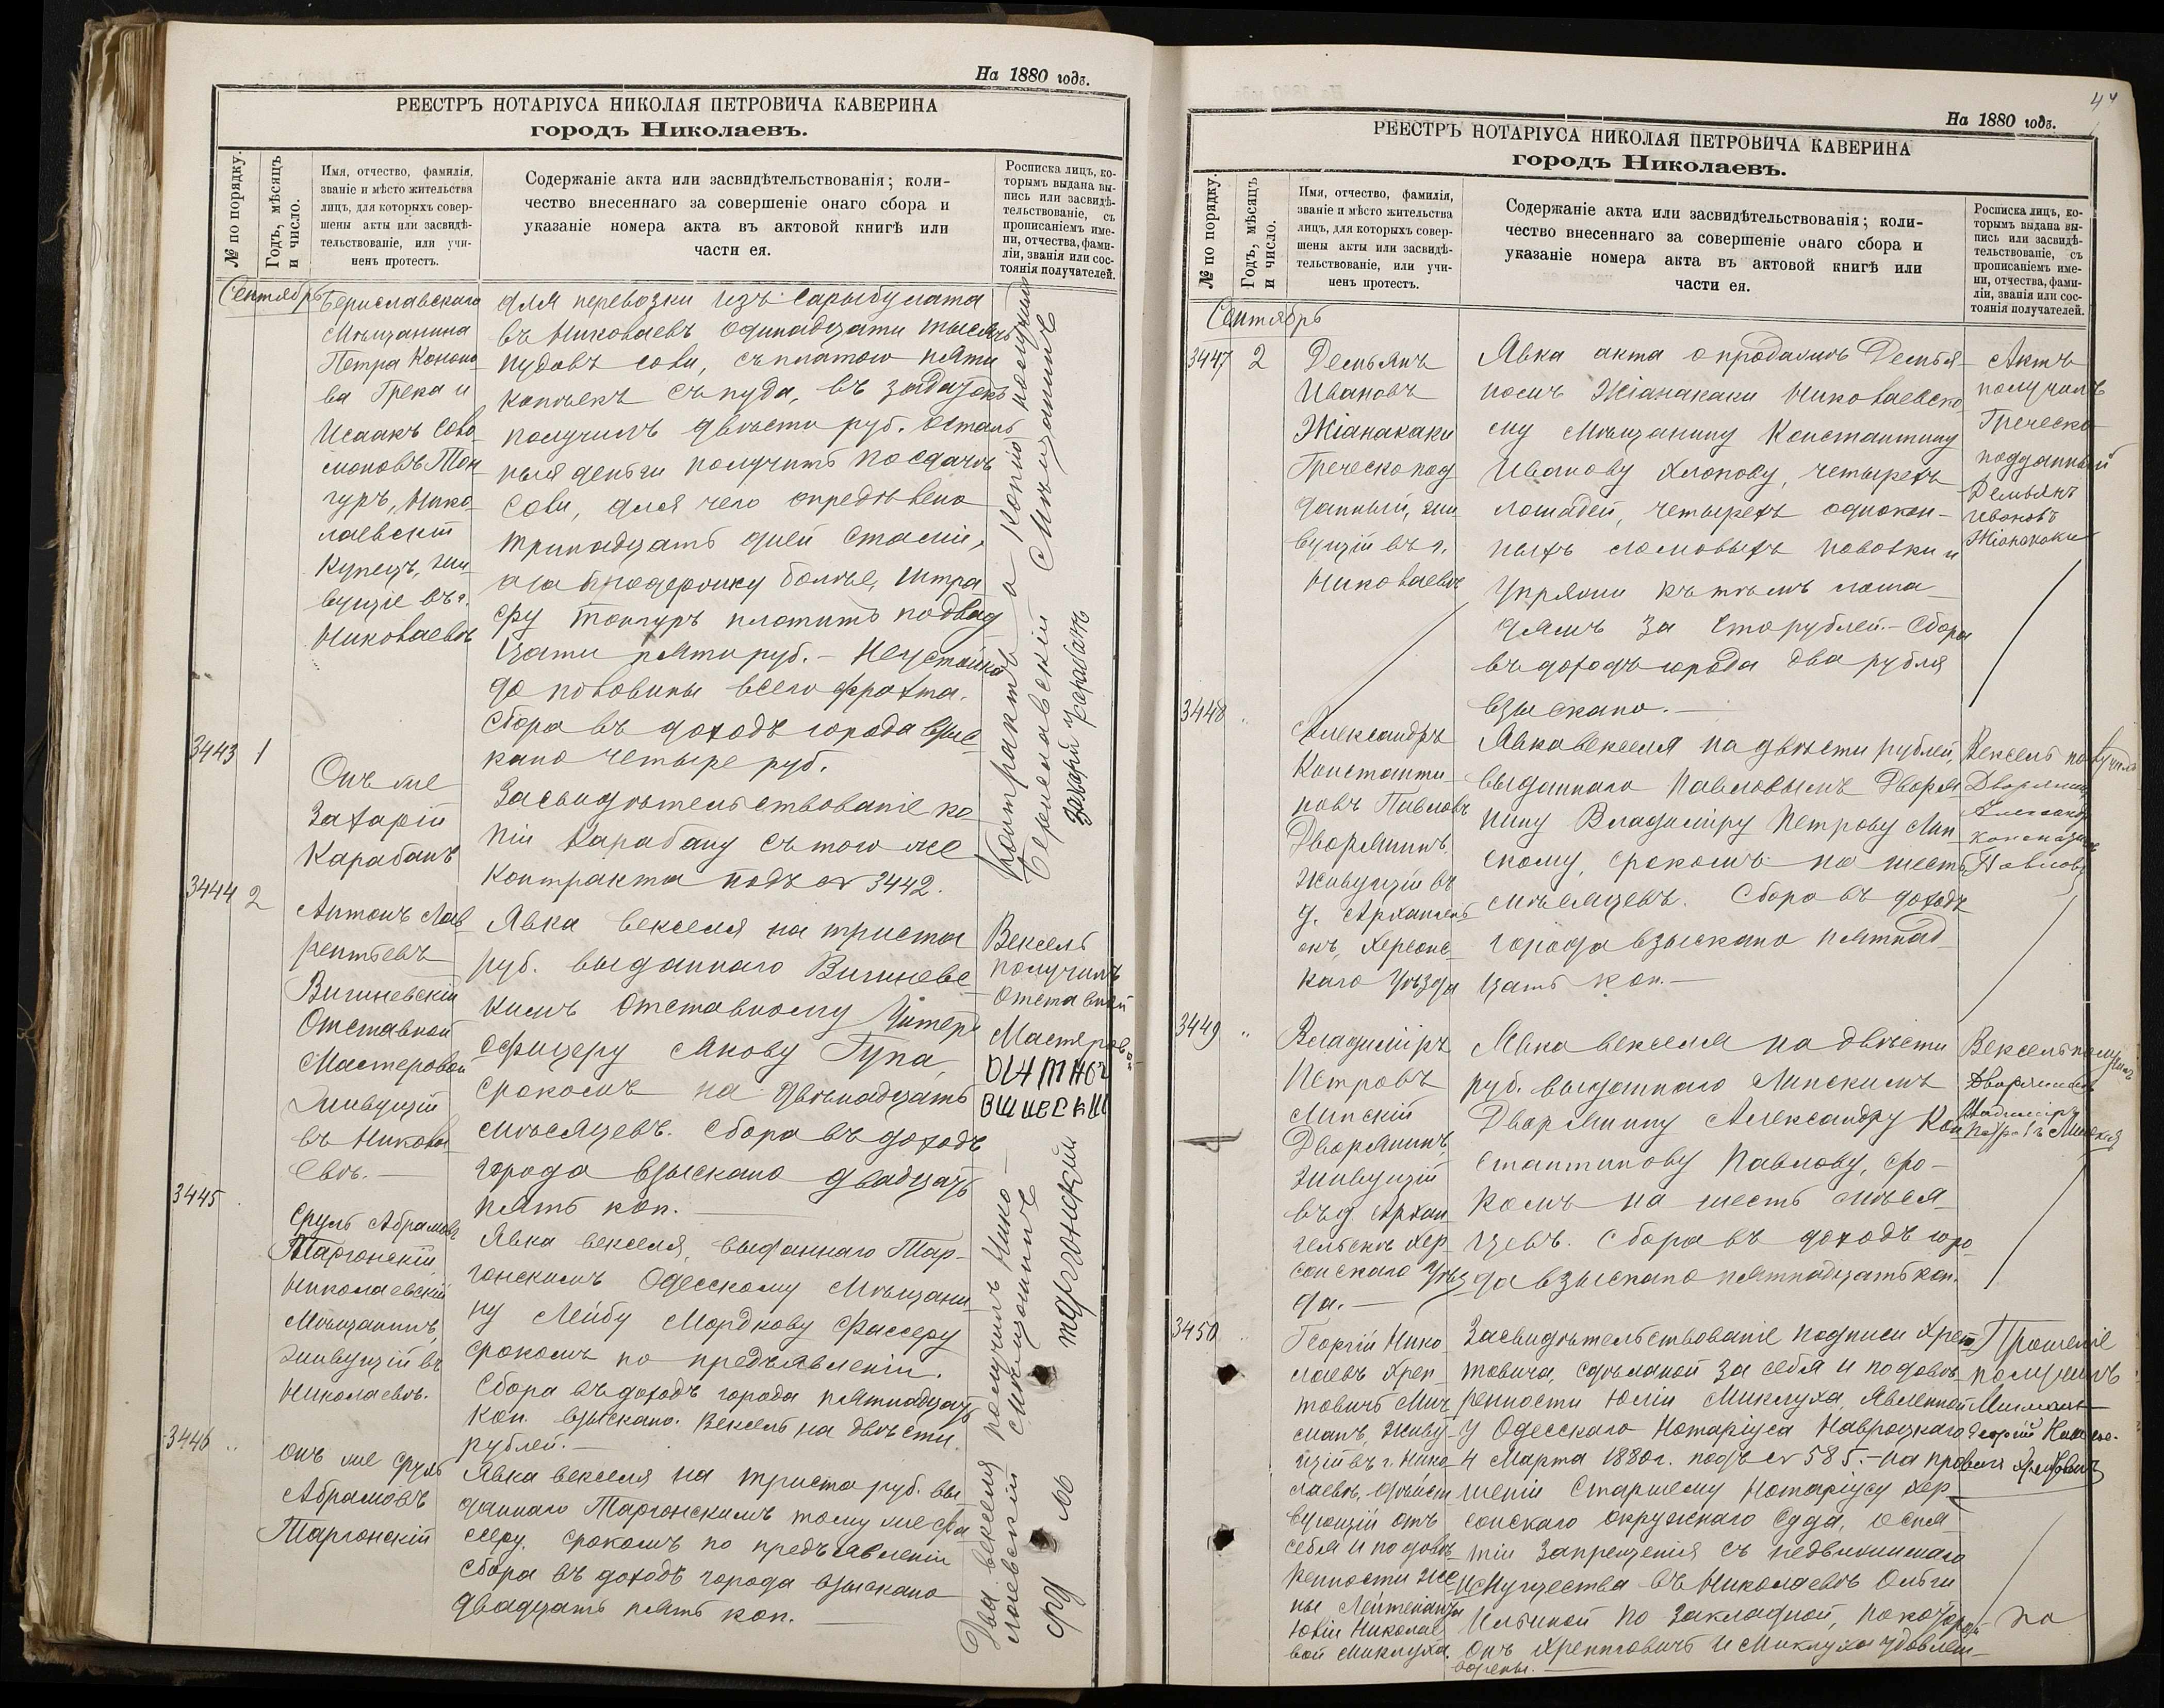 На 1880 годъ.
РЕЕСТРЪ НОТАРІУСА НИКОЛАЯ ПЕТРОВИЧА КАВЕРИНА
городъ Николаевъ.
№ по порядку.
Годъ, мѣсяцъ
и число.
Имя, отчество, фамилія,
званіе и мѣсто жительства
лицъ, для которыхъ совер-
шены акты или засвидѣ-
тельствованіе, или учи-
ненъ протестъ.
Содержаніе акта или засвидѣтельствованія; коли-
чество внесеннаго за совершеніе онаго сбора и
указаніе номера акта въ актовой книгѣ или
части ея.
Росписка лицъ, ко-
торымъ выдана вы-
пись или засвидѣ-
тельствованіе, съ
прописаніемъ име-
ни, отчества, фами-
ліи, званія или сос-
тоянія получателей.
Сентябрь
Бериславскаго
Мѣщанина
Петра Конона
ва Грека и
Исаакъ Соло
моновъ Тон
гуръ, Нико
лаевскій
Купецъ, жи
вущіе въ г.
Николаевѣ
для перевозки изъ Сарыбулата
въ Николаевъ одинадцати тысячъ
пудовъ соли, съ платою пяти
копѣекъ съ пуда, въ задатокъ
получилъ двѣсти руб. осталь
ныя деньги получить по сдачѣ
соли, для чего опредѣлено
тринадцать дней сталіи,
а за передержку болѣе, штра
фу Тонгуръ платитъ по двад
цати пяти руб. – Неустойка
до половины всего фрахта.
Сбора въ доходъ города взыс
кано четыре руб.
3443 1
Онъ же
Захарій
Карабанъ
Засвидѣтельствованіе ко
піи Карабану съ того же
контракта подъ № 3442.
Контрактъ и копію получилъ
Бериславскій Мѣщанинъ
Захарій Карабанъ
3444 2
Антонъ Лав
рентьевъ
Вишневскій
Отставной
Мастеровой
Живущій
въ Никола
евѣ. –
Явка векселя на триста
руб. выданнаго Вишневс
кимъ отставному Унтеръ
офицеру Якову Гупа,
срокомъ на двѣнадцать
мѣсяцевъ. Сбора въ доходъ
города взыскано двадцать
пять коп.
Вексель
получилъ
отставной
Мастерово
й
3445
Сруль Абрамовъ
Таргонскій
Николаевскій
Мѣщанинъ,
живущій въ
Николаевѣ.
Явка векселя, выданнаго Тар-
гонскимъ Одесскому Мѣщани
ну Лейбу Мордкову Фассеру
срокомъ по предъявленіи.
Сбора въ доходъ города пятнадцать
коп. взыскано. Вексель на двѣсти
рублей. –
3446 "
Онъ же Сруль
Абрамовъ
Таргонскій
Явка векселя на триста руб. вы
даннаго Таргонскимъ тому же Фа
ссеру, срокомъ по предъявленіи
Сбора въ доходъ города взыскано
двадцать пять коп.
Два векселя получилъ Нико –
лаевскій Мѣщанинъ
сруль таргонский
На 1880 годъ.
РЕЕСТРЪ НОТАРІУСА НИКОЛАЯ ПЕТРОВИЧА КАВЕРИНА
городъ Николаевъ.
№ по порядку.
Годъ, мѣсяцъ
и число.
Имя, отчество, фамилія,
званіе и мѣсто жительства
лицъ, для которыхъ совер-
шены акты или засвидѣ-
тельствованіе, или учи-
ненъ протестъ.
Содержаніе акта или засвидѣтельствованія; коли-
чество внесеннаго за совершеніе онаго сбора и
указаніе номера акта въ актовой книгѣ или
части ея.
Росписка лицъ, ко-
торымъ выдана вы-
пись или засвидѣ-
тельствованіе, съ
прописаніемъ име-
ни, отчества, фами-
ліи, званія или сос-
тоянія получателей.
Сентябрь
3447 2
Демьянъ
Ивановъ
Жіанакаки
Греческо под
данный, жи
вущій въ г.
Николаевѣ
Явка акта о продажѣ Демья
номъ Жіанакаки Николаевско
му Мѣщанину Константину
Иванову Хлопову, четырехъ
лошадей, четырехъ однокон-
ныхъ ломовыхъ повозки и
упряжи къ тѣмъ лоша
дямъ за сто рублей. – Сбора
въ доходъ города два рубля
взыскано. –
Актъ
получилъ
Греческо
подданный
Демьянъ
Ивановъ
Жіанакаки
3448 "
Александръ
Константи
новъ Павловъ
Дворянинъ,
живущій въ
д. Архангель
скѣ, Херсонс
каго Уѣзда
Явка векселя на двѣсти рублей,
выданнаго Павловымъ Дворя
нину Владиміру Петрову Лин
скому, срокомъ на шесть
мѣсяцевъ. Сбора въ доходъ
города взыскано пятнад
цать коп. –
Вексель получилъ
Дворянинъ
Александръ
Павловъ
3449 "
Владиміръ
Петровъ
Линскій
Дворянинъ,
живущій
въ д. Архан
гельскѣ Хер
сонскаго Уѣз
да. –
Явка векселя на двѣсти
руб. выданнаго Линскимъ
Дворянину Александру Кон
стантинову Павлову, сро-
комъ на шесть мѣся
цевъ. Сбора въ доходъ горо
да взыскано пятнадцать коп.
Вексель получилъ
Дворянинъ
Владиміръ
Петровъ Линскій
3450 "
Георгій Нико
лаевъ Хреп
товичъ Мич
манъ, живу
щій въ г. Нико
лаевѣ, дѣйст
вующій отъ
себя и по довѣ
ренности же
ны Лейтенанта
Юліи Николае
вой Миклуха.
Засвидѣтельствованіе подписи Хреп
товича, сдѣланой за себя и по довѣ
ренности Юліи Миклуха, явленной
у Одесскаго Нотаріуса Навроцкаго
4 Марта 1880 г. подъ № 585. – на про
шеніи Старшему Нотаріусу Хер
сонскаго Окружнаго Суда, о сня
тіи запрещенія съ недвижимаго
имущества въ Николаевѣ Ольги
Ильиной по закладной, по которой
онъ Хрептовичъ и Миклуха удовлетв
ворены. –
Прошеніе
получилъ
Мичманъ
Георгій Николае-
вичъ Хрептовичъ